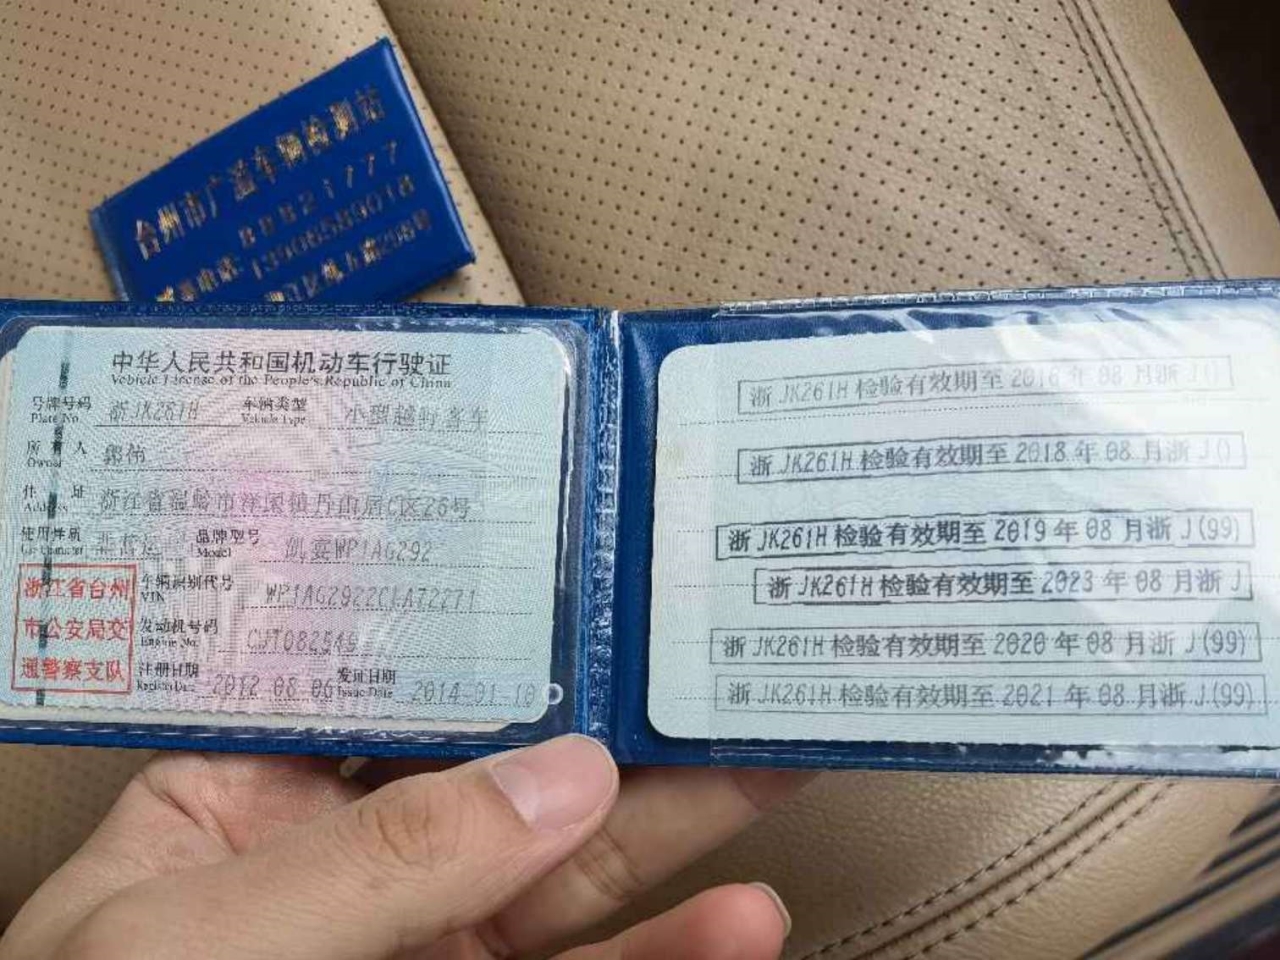 台州市广溢车辆检测站
8882177
13906589018
中华人民共和国机动车行驶证
Vehicle License of the People's Republic of China
号牌号码 浙JK261H 车辆类型 小型越野客车
Plate No. Vehicle Type
所有人 郭伟
Owner
住址 浙江省温岭市泽国镇丹山居C区26号
Address
使用性质 非营运 品牌型号
Use Character Model WP1AG292
浙江省台州
市公安局交
通警察支队
车辆识别代号 WP1AG2922CLA72271
VIN
发动机号码 CJT082549
Engine No.
注册日期 2012-08-06 发证日期 2014-01-10
Register Date Issue Date
浙JK261H检验有效期至2016年08月浙J()
浙JK261H检验有效期至2018年08月浙J()
浙JK261H检验有效期至2019年08月浙J(99)
浙JK261H检验有效期至2023年08月浙J
浙JK261H检验有效期至2020年08月浙J(99)
浙JK261H检验有效期至2021年08月浙J(99)